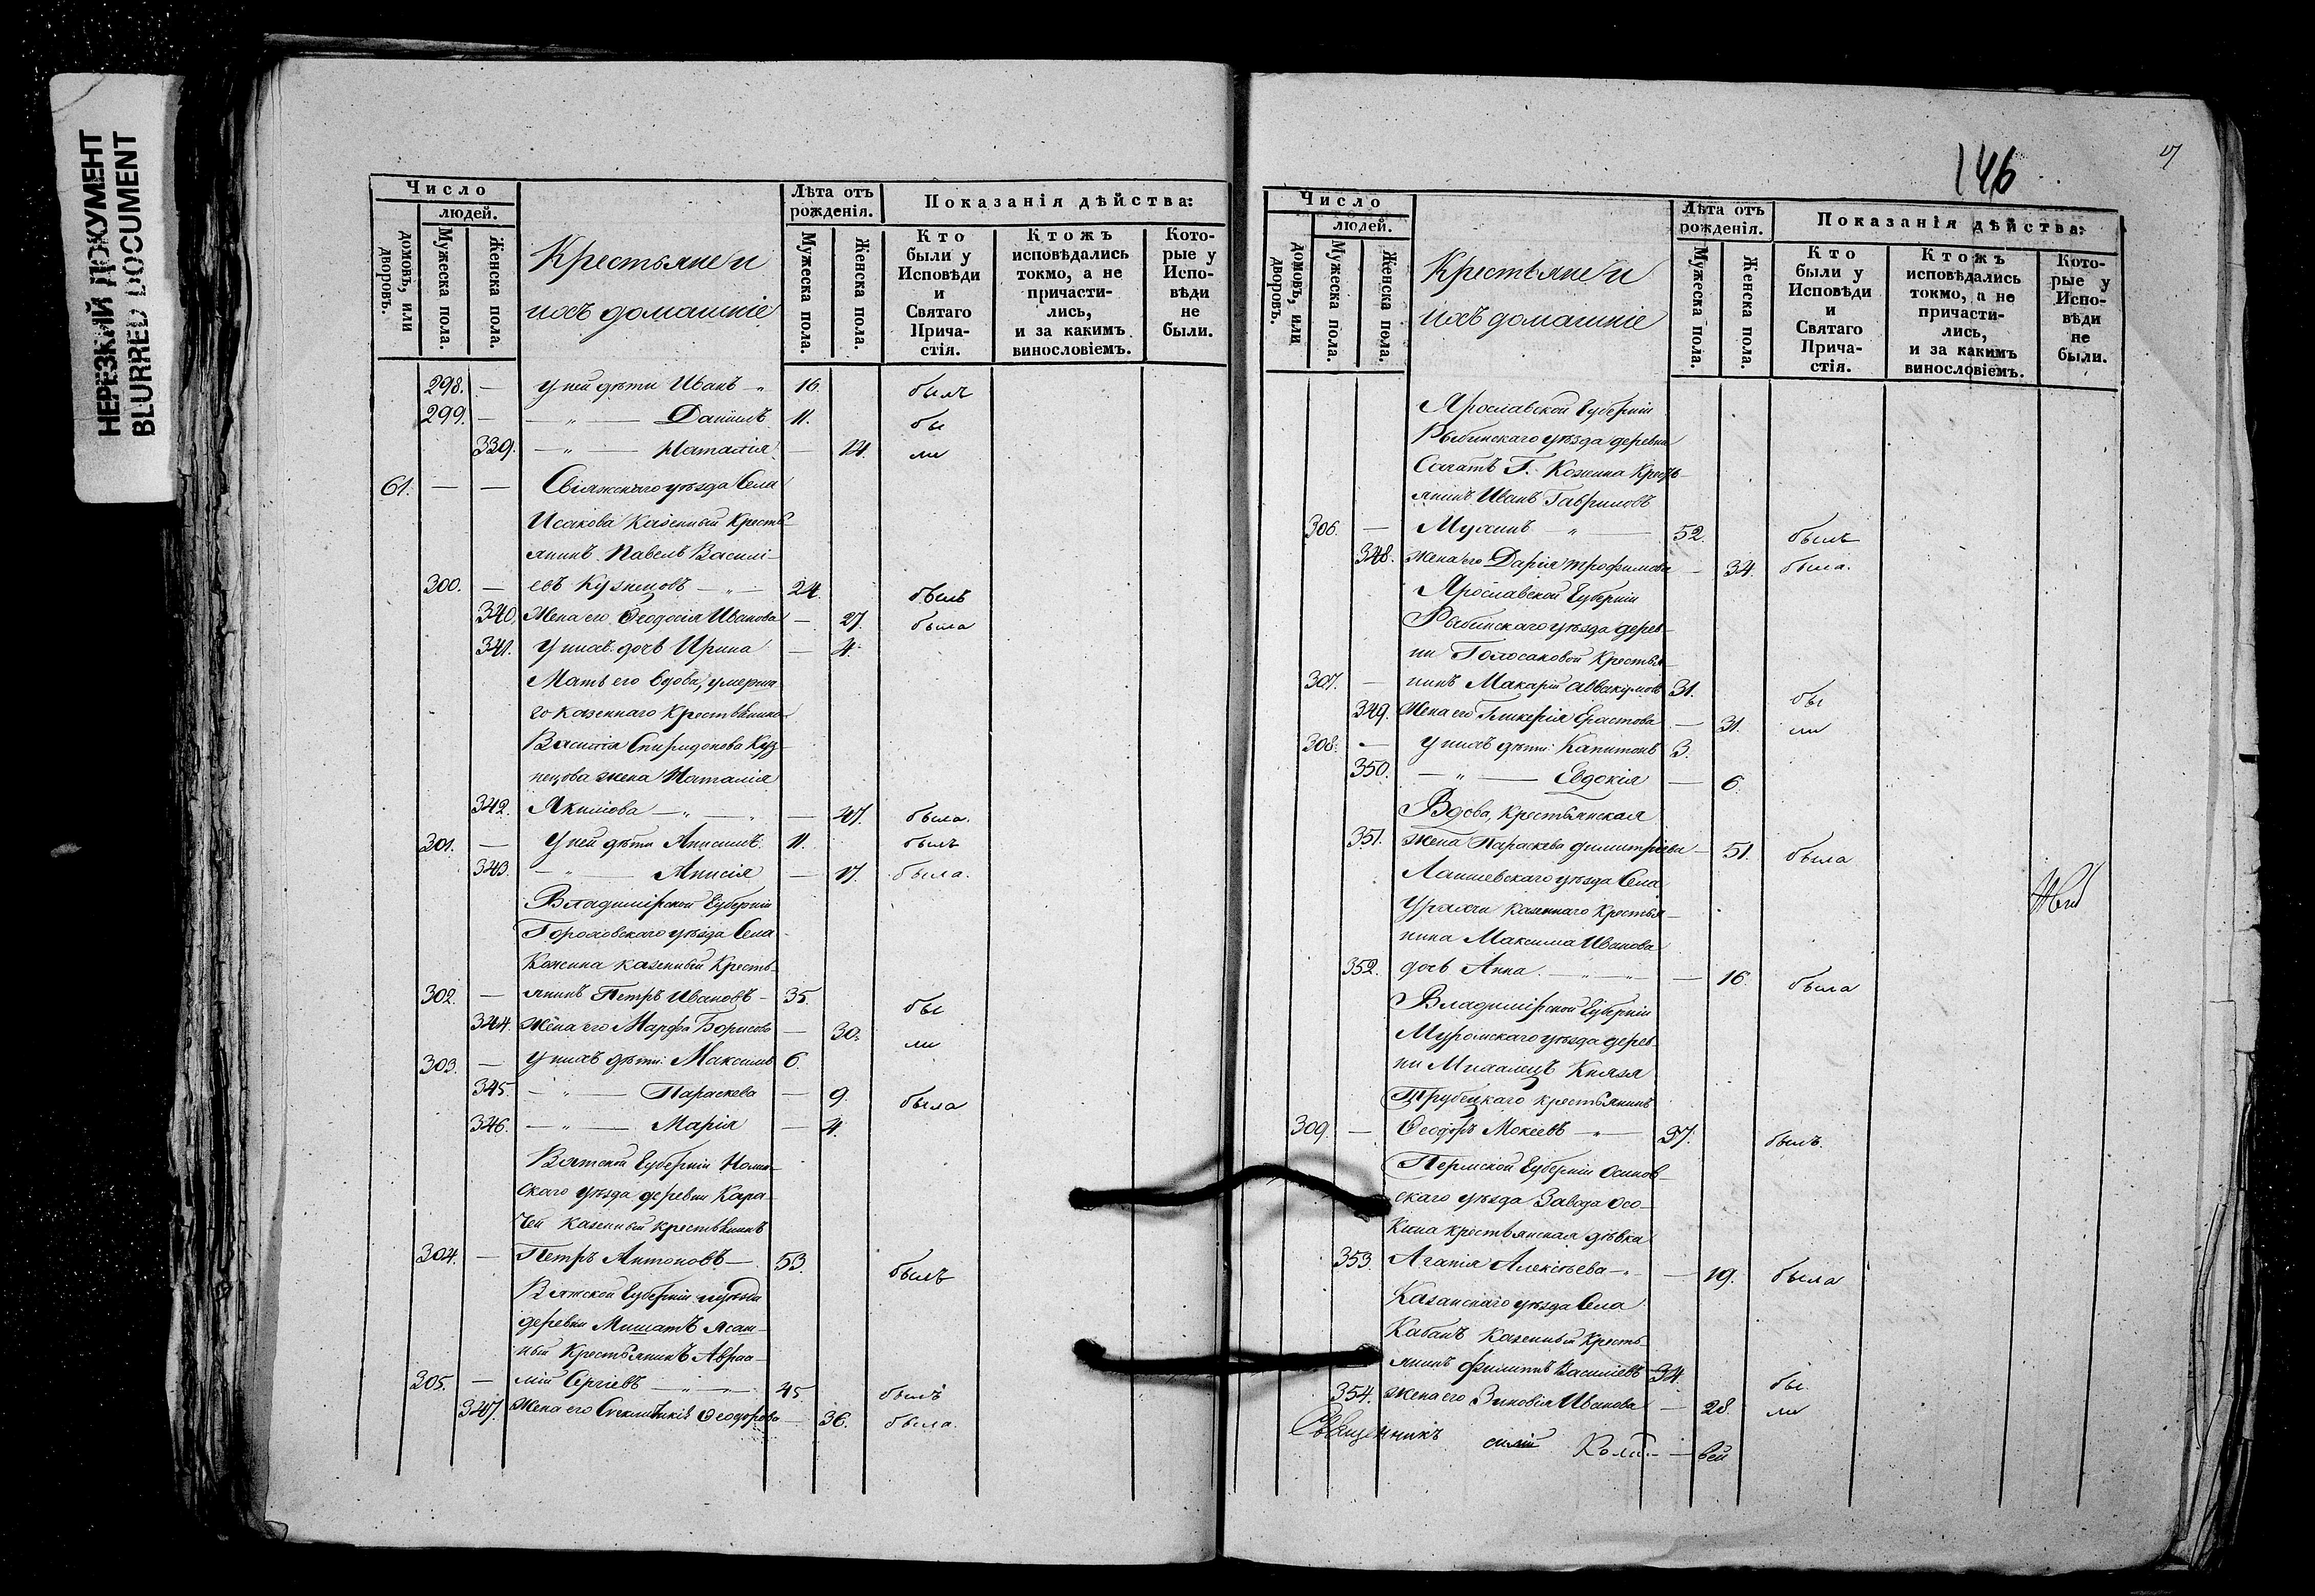 НЕРЕЗКИЙ ДОКУМЕНТ
BLURRED DOCUMENT
Число
людей.
домовъ, или дворовъ.
Мужеска пола.
Женска пола.
Крестьяне и
ихъ домашніе
Лѣта отъ рожденія.
Мужеска пола.
Женска пола.
Показанія дѣйства:
Кто были у Исповѣди и Святаго Прича-стія.
Ктожъ исповѣдались токмо, а не причасти-лись, и за какимъ винословіемъ.
Кото-рые у Испо-вѣди не были.
298. — У ней дѣти Иванъ „ 16. былъ
299. — „ — Даніилъ 11. бы
339. — „ — Наталія — 14. ли
61. — — Свіяжскаго уѣзда Села
Исакова казенный кресть-
янинъ Павелъ Василі-
300. — евъ Кузнецовъ — „ — 24. былъ
340. Жена его Ѳеодосія Иванова — 27. была
341. У нихъ дочь Ирина — 4.
Мать его вдова, умерша-
го казеннаго крестьянина
Василія Спиридонова Куз-
нецова жена Наталія
342. Якимова — „ — „ — 47. была.
301. — У ней дѣти Анисимъ 11. былъ
343. — „ — Анисія — 17. была.
Владимірской Губерніи
Гороховскаго уѣзда Села
Кожина казенный кресть-
302. — янинъ Петръ Ивановъ — 35. бы
344. Жена его Марѳа Борисова — 30. ли
303. — У нихъ дѣти: Максимъ 6.
345. — „ — Параскева — 9. была
346. — „ — Марія — 4.
Вятской Губерніи
скаго уѣзда деревни Кара-
чей казенный крестьянинъ
304. — Петръ Антоновъ — 53. былъ
Вятской Губерніи и уѣзда
деревни ясаш-
ный крестьянинъ Авраа-
305. — мій Сергіевъ — „ — „ — 45. былъ
347. Жена его Ѳеодорова — 36. была.
146
17
Число
людей.
домовъ, или дворовъ.
Мужеска пола.
Женска пола.
Крестьяне и
ихъ домашніе
Лѣта отъ рожденія.
Мужеска пола.
Женска пола.
Показанія дѣйства:
Кто были у Исповѣди и Святаго Прича-стія.
Ктожъ исповѣдались токмо, а не причасти-лись, и за какимъ винословіемъ.
Кото-рые у Испо-вѣди не были.
Ярославской Губерніи
Рыбинскаго уѣзда деревни
Г. Кожина кресть-
янинъ Иванъ Гавриловъ
306. — Мухинъ — „ — 52. былъ
348. Жена его Дарія Трофимова — 34. была.
Ярославской Губерніи
Рыбинскаго уѣзда дерев-
ни Голосаковой крестья-
307. — нинъ Макарій Аввакумовъ 31. бы
349. Жена его Гликерія Ерастова — 31. ли
308. — У нихъ дѣти: Капитонъ 3.
350. — „ — Евдокія — 6.
Вдова, крестьянская
351. жена Параскева Димитріева — 51. была
Лаишевскаго уѣзда Села
Урахчи казеннаго крестья-
нина Максима Иванова
352. дочь Анна. — „ — „ — 16. была
Владимірской Губерніи
Муромскаго уѣзда дерев-
ни Князя
Трубецкаго крестьянинъ
309. — Ѳеодоръ Мокіевъ — „ — 37. былъ.
Пермской Губерніи Осинов-
скаго уѣзда Завода Осо-
кина крестьянская дѣвка
353. Агапія Алексѣева — „ — 19. была
Казанскаго уѣзда Села
Кабанъ казенный кресть-
янинъ Филиппъ Василіевъ — 34. бы
354. Жена его Зиновія Иванова — 28. ли
Священникъ